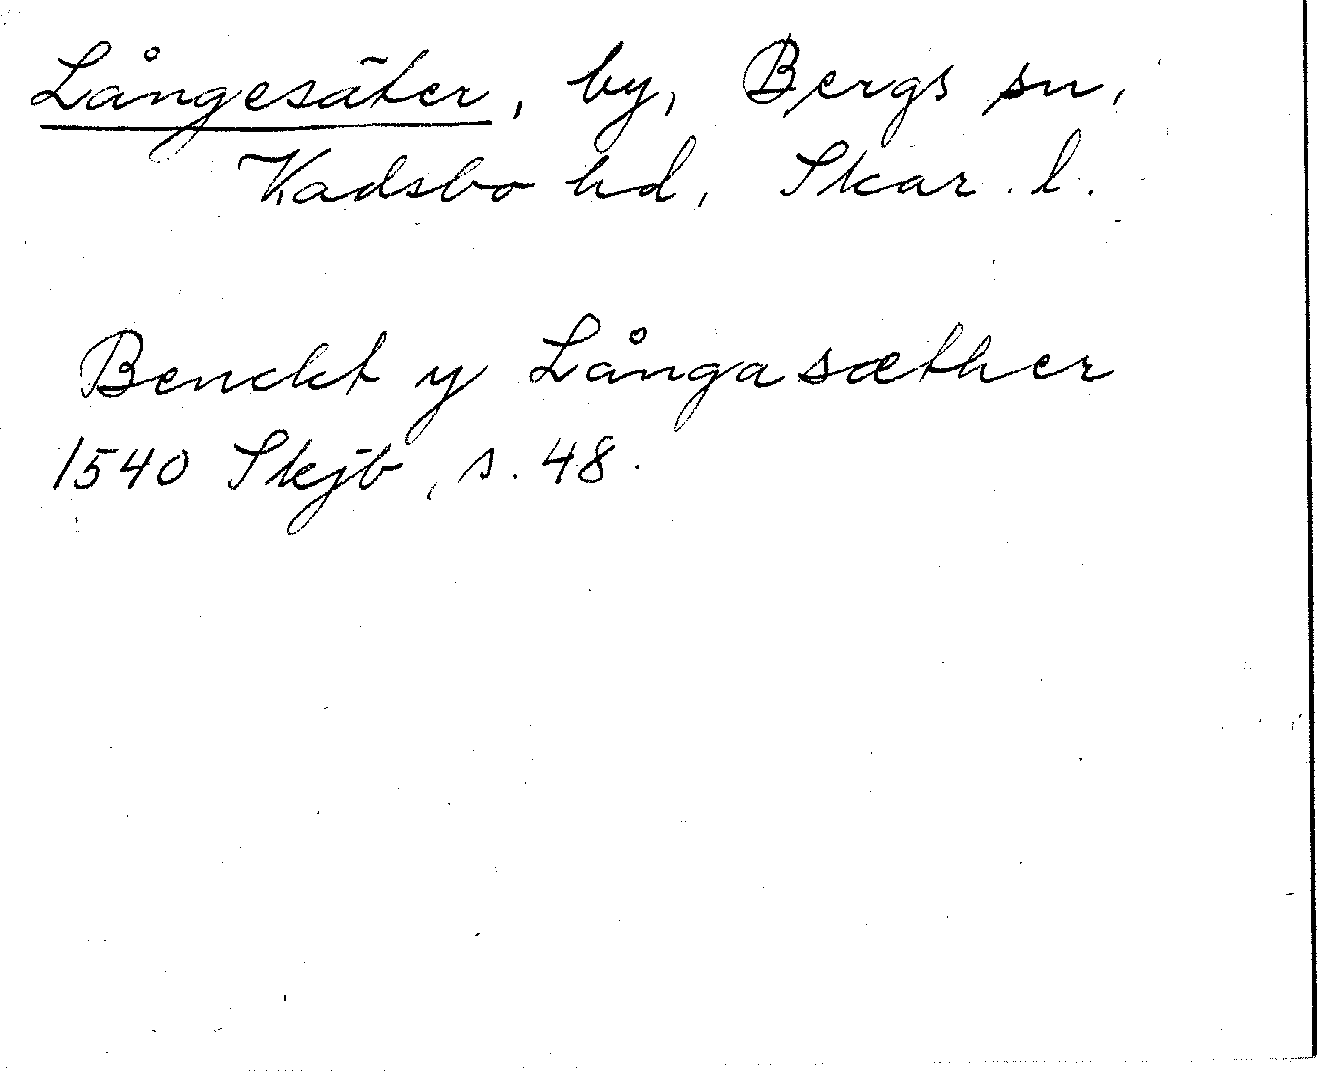 Långesäter, by, Bergs sn,
Kadsbo hd, Skar. l.
Benckt y Långasæther
1540 Skjb, s. 48.